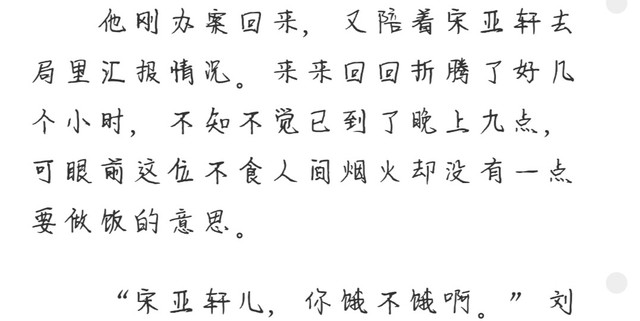 他刚办案回来，又陪着宋亚轩去
局里汇报情况。来来回回折腾了好几
个小时，不知不觉已到了晚上九点，
可眼前这位不食人间烟火却没有一点
要做饭的意思。
“宋亚轩儿，你饿不饿啊。”刘